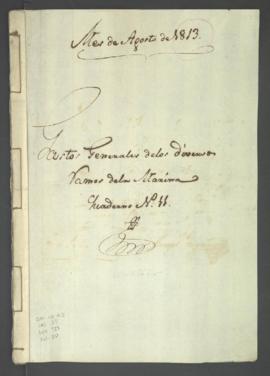 Mes de Agosto de 1813.
Gastos Generales delos diversos
Ramos dela Marina
Quaderno N.º 11.